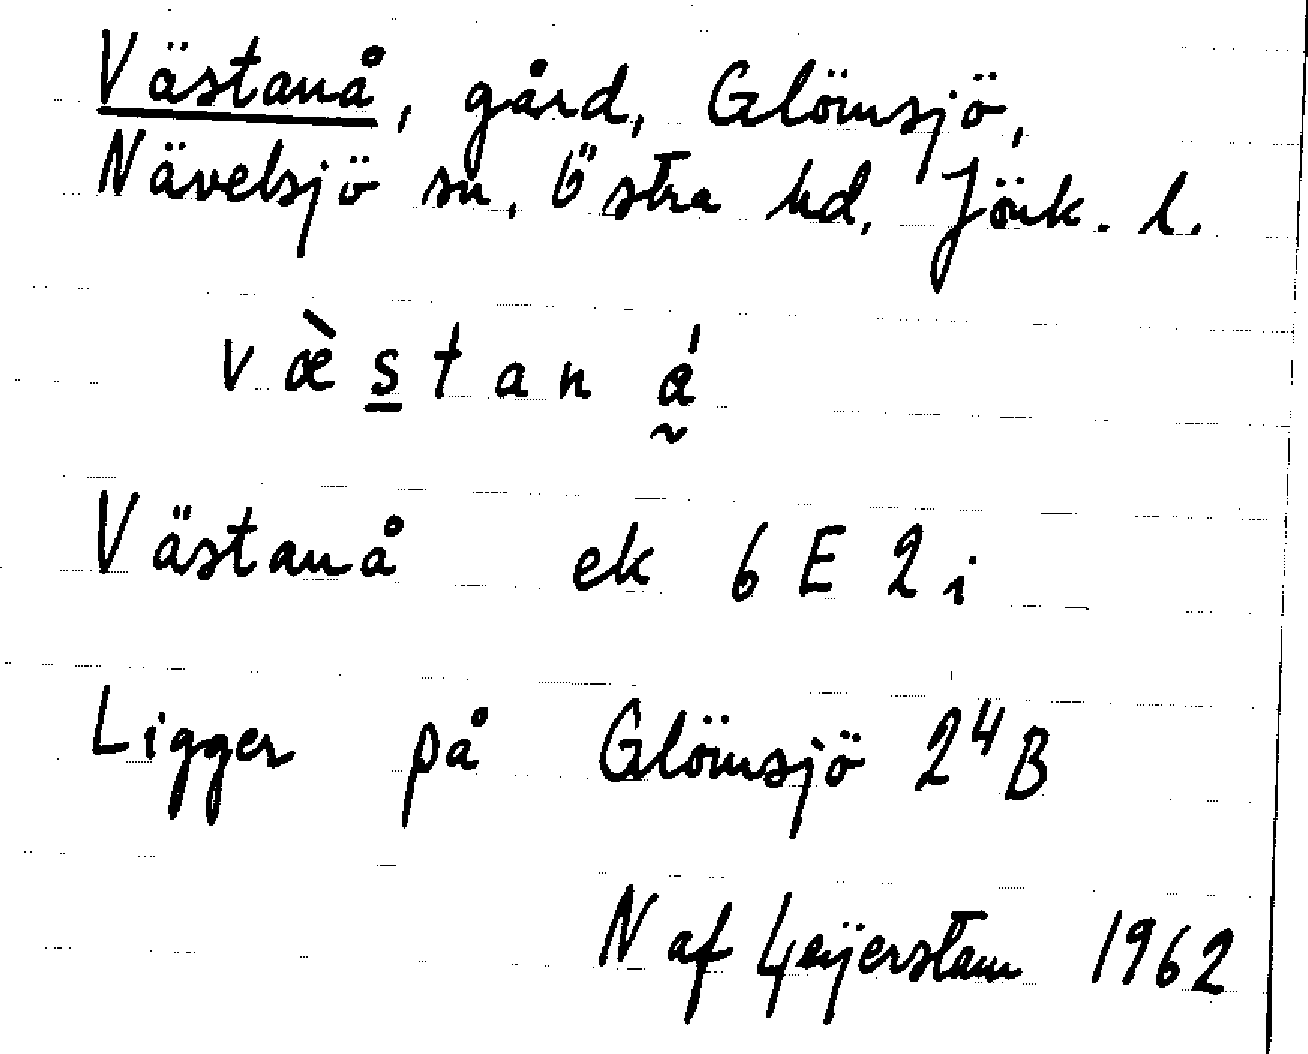 Västanå, gård, Glömsjö,
Nävelsjö sn, Östra hd, Jönk. l.
v æ̀ s̲ t a n á̰
Västanå ek 6 E 2 i
Ligger på Glömsjö 2⁴B
N af Geijerstam 1962